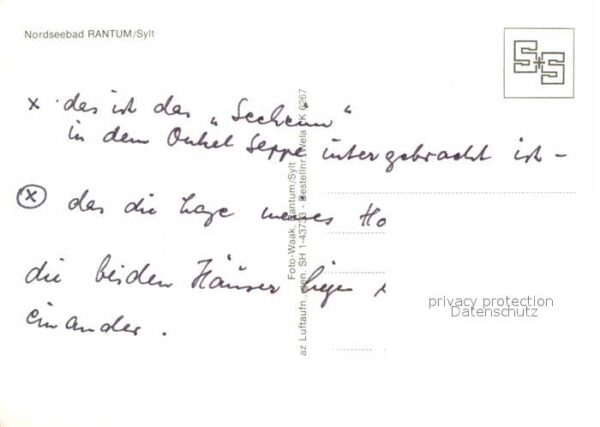 Nordseebad RANTUM/Sylt
S+S
x das ist das „Seeheim“
in dem Onkel Seppe untergebracht ist –
(x) das die Lage meines Ho
die beiden Häuser liegen
einander.
Foto-Waak, Rantum/Sylt
az Luftaufn. gen. SH 1-43733 - Bestellnr. Wela KK 6267
privacy protection
Datenschutz